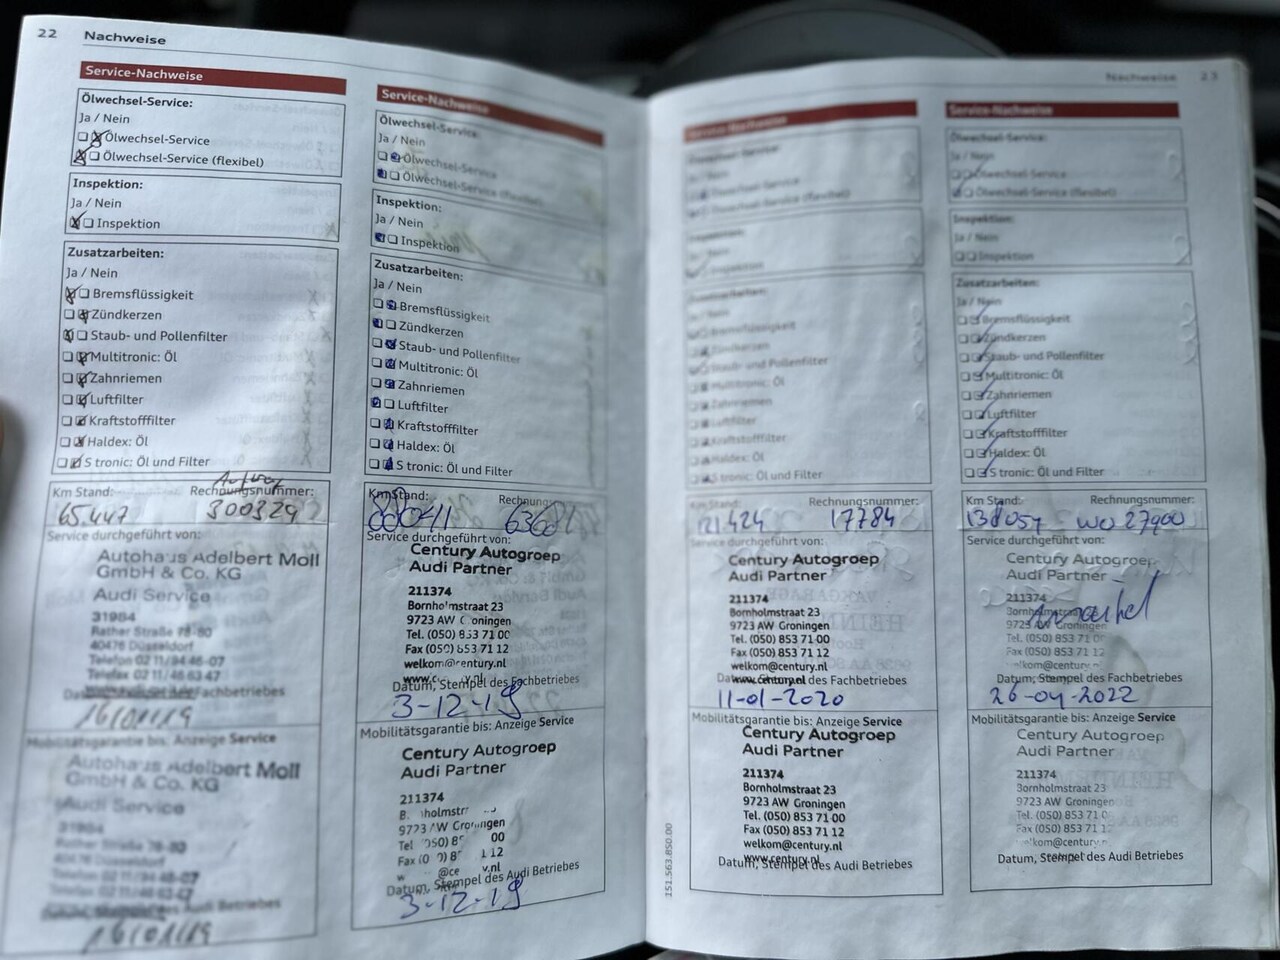 22 Nachweise
Service-Nachweise
Ölwechsel-Service:
Ja / Nein
Ölwechsel-Service
Ölwechsel-Service (flexibel)
Inspektion:
Ja / Nein
Inspektion
Zusatzarbeiten:
Ja / Nein
Bremsflüssigkeit
Zündkerzen
Staub- und Pollenfilter
Multitronic: Öl
Zahnriemen
Luftfilter
Kraftstofffilter
Haldex: Öl
S tronic: Öl und Filter
Km Stand: Rechnungsnummer:
65.447 300329
Service durchgeführt von:
Autohaus Adelbert Moll
GmbH & Co. KG
Audi Service
31984
Rather Straße 78-80
40476 Düsseldorf
Telefon 02 11/94 46-07
Telefax 02 11/48 63-47
16/01/19
Mobilitätsgarantie bis: Anzeige Service
Autohaus Adelbert Moll
GmbH & Co. KG
Audi Service
16/01/19
Service-Nachweise
Ölwechsel-Service:
Ja / Nein
Ölwechsel-Service
Ölwechsel-Service (flexibel)
Inspektion:
Ja / Nein
Inspektion
Zusatzarbeiten:
Ja / Nein
Bremsflüssigkeit
Zündkerzen
Staub- und Pollenfilter
Multitronic: Öl
Zahnriemen
Luftfilter
Kraftstofffilter
Haldex: Öl
S tronic: Öl und Filter
Km Stand:
Service durchgeführt von:
Century Autogroep
Audi Partner
211374
Bornholmstraat 23
9723 AW Groningen
Tel. (050) 853 71 00
Fax (050) 853 71 12
welkom@century.nl
Datum, Stempel des Fachbetriebes
3-12-19
Mobilitätsgarantie bis: Anzeige Service
Century Autogroep
Audi Partner
211374
9723 AW Groningen
Datum, Stempel des Audi Betriebes
3-12-19
Nachweise 23
Service-Nachweise
Ja / Nein
Inspektion
Ja / Nein
Bremsflüssigkeit
Zündkerzen
Staub- und Pollenfilter
Multitronic: Öl
Zahnriemen
Luftfilter
Kraftstofffilter
Haldex: Öl
S tronic: Öl und Filter
Km Stand: Rechnungsnummer:
121424 17784
Service durchgeführt von:
Century Autogroep
Audi Partner
211374
Bornholmstraat 23
9723 AW Groningen
Tel. (050) 853 71 00
Fax (050) 853 71 12
welkom@century.nl
www.century.nl
Datum, Stempel des Fachbetriebes
11-01-2020
Mobilitätsgarantie bis: Anzeige Service
Century Autogroep
Audi Partner
211374
Bornholmstraat 23
9723 AW Groningen
Tel. (050) 853 71 00
Fax (050) 853 71 12
welkom@century.nl
www.century.nl
Datum, Stempel des Audi Betriebes
151.563.850.00
Service-Nachweise
Ölwechsel-Service:
Ja / Nein
Ölwechsel-Service
Ölwechsel-Service (flexibel)
Inspektion:
Ja / Nein
Inspektion
Zusatzarbeiten:
Ja / Nein
Bremsflüssigkeit
Zündkerzen
Staub- und Pollenfilter
Multitronic: Öl
Zahnriemen
Luftfilter
Kraftstofffilter
Haldex: Öl
S tronic: Öl und Filter
Km Stand: Rechnungsnummer:
138054 WO 27900
Service durchgeführt von:
Century Autogroep
Audi Partner
211374
Bornholmstraat
9723 AW Groningen
Tel. (050) 853 71 0
Fax (050) 853 71 12
welkom@century.n
Datum, Stempel des Fachbetriebes
26-04-2022
Mobilitätsgarantie bis: Anzeige Service
Century Autogroep
Audi Partner
211374
Bornholmstraat 23
9723 AW Groningen
Tel. (050) 853 71 0
Fax (050) 853 71 12
welkom@century.n
Datum, Stempel des Audi Betriebes